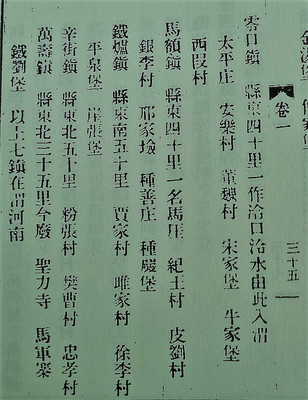 卷一
三十五
零口鎮 縣東四十里一作泠口泠水由此入渭
太平庄 安樂村 董䂓村 宋家堡 牛家堡
西叚村
馬額鎮 縣東四十里一名馬厓 紀王村 皮劉村
銀李村 邢家堎 種善庄 種巖堡
鐵爐鎮 縣東南五十里 賈家村 雎家村 徐李村
平泉堡 崖張堡
辛街鎮 縣東北五十里 粉張村 樊曹村 忠孝村
萬壽鎮 縣東北三十五里今廢 聖力寺 馬軍寨
鐵劉堡 以上七鎮在渭河南